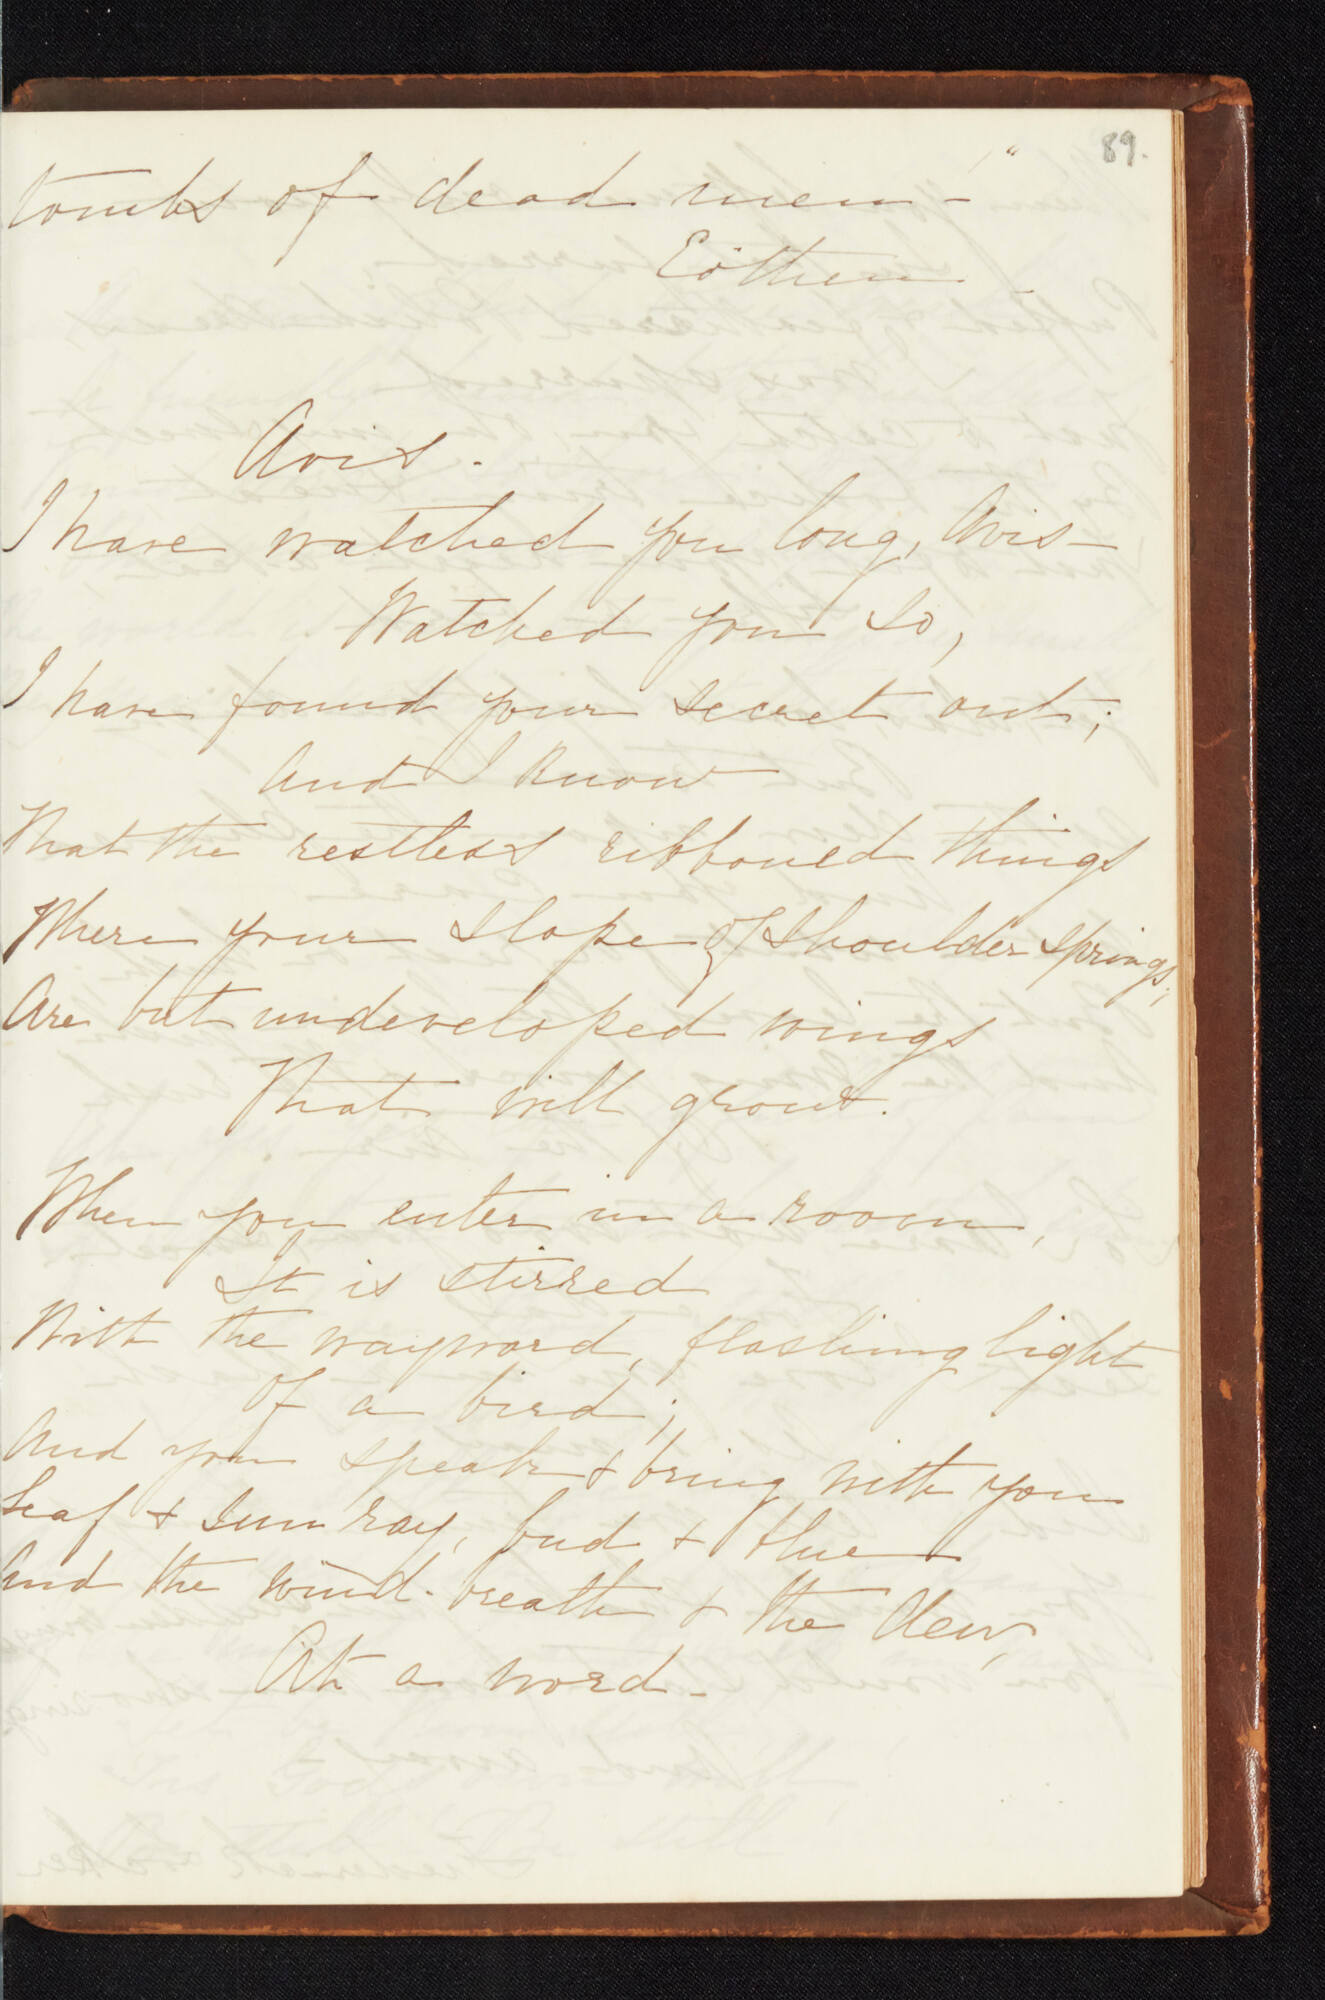 89.
tombs of dead men —"
Eöthen —
Avis.
I have watched you long, Avis —
Watched you so,
I have found your secret out;
And I know
That the restless ribboned things
Where your slope of shoulder springs,
Are but undeveloped wings
That will grow.
When you enter in a room,
It is stirred
With the wayward, flashing light
Of a bird;
And you speak & bring with you
Leaf & sun ray, bud & blue
And the wind-breath & the dew,
At a word —